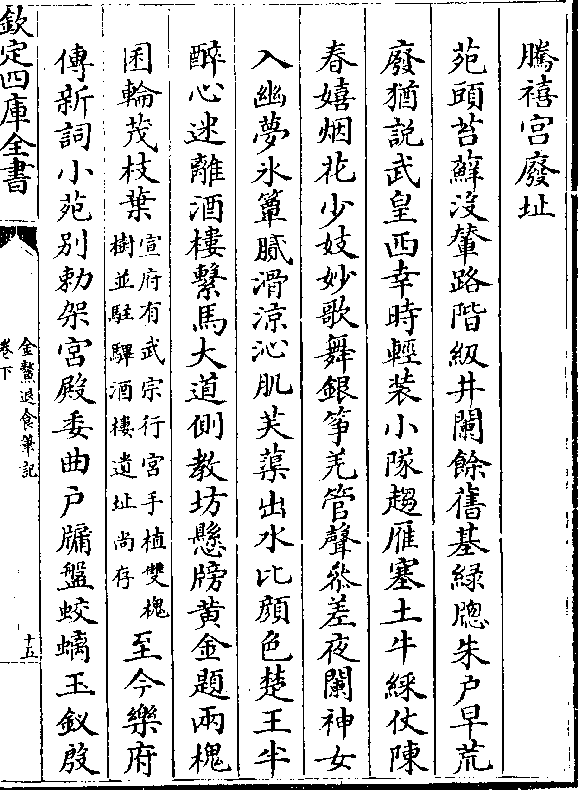 騰禧宮廢址
苑頭苔蘚沒輦路階級井闌餘舊基緑牕朱戸早荒
廢猶說武皇西幸時輕装小隊趨雁塞土牛綵仗陳
春嬉烟花少妓妙歌舞銀筝羌管聲參差夜闌神女
入幽夢氷簟膩滑涼沁肌芙蕖出水比顔色楚王半
醉心迷離酒樓繫馬大道側教坊懸牓黄金題兩槐
囷輪茂枝葉宣府有武宗行宮手植雙槐
樹並駐驛酒樓遺址尚存至今樂府
傳新詞小苑别勅架宮殿委曲户牖盤蛟螭玉釵啟
欽定四庫全書
金鰲退食筆記
卷下
十五